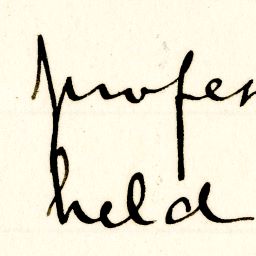 profes
held